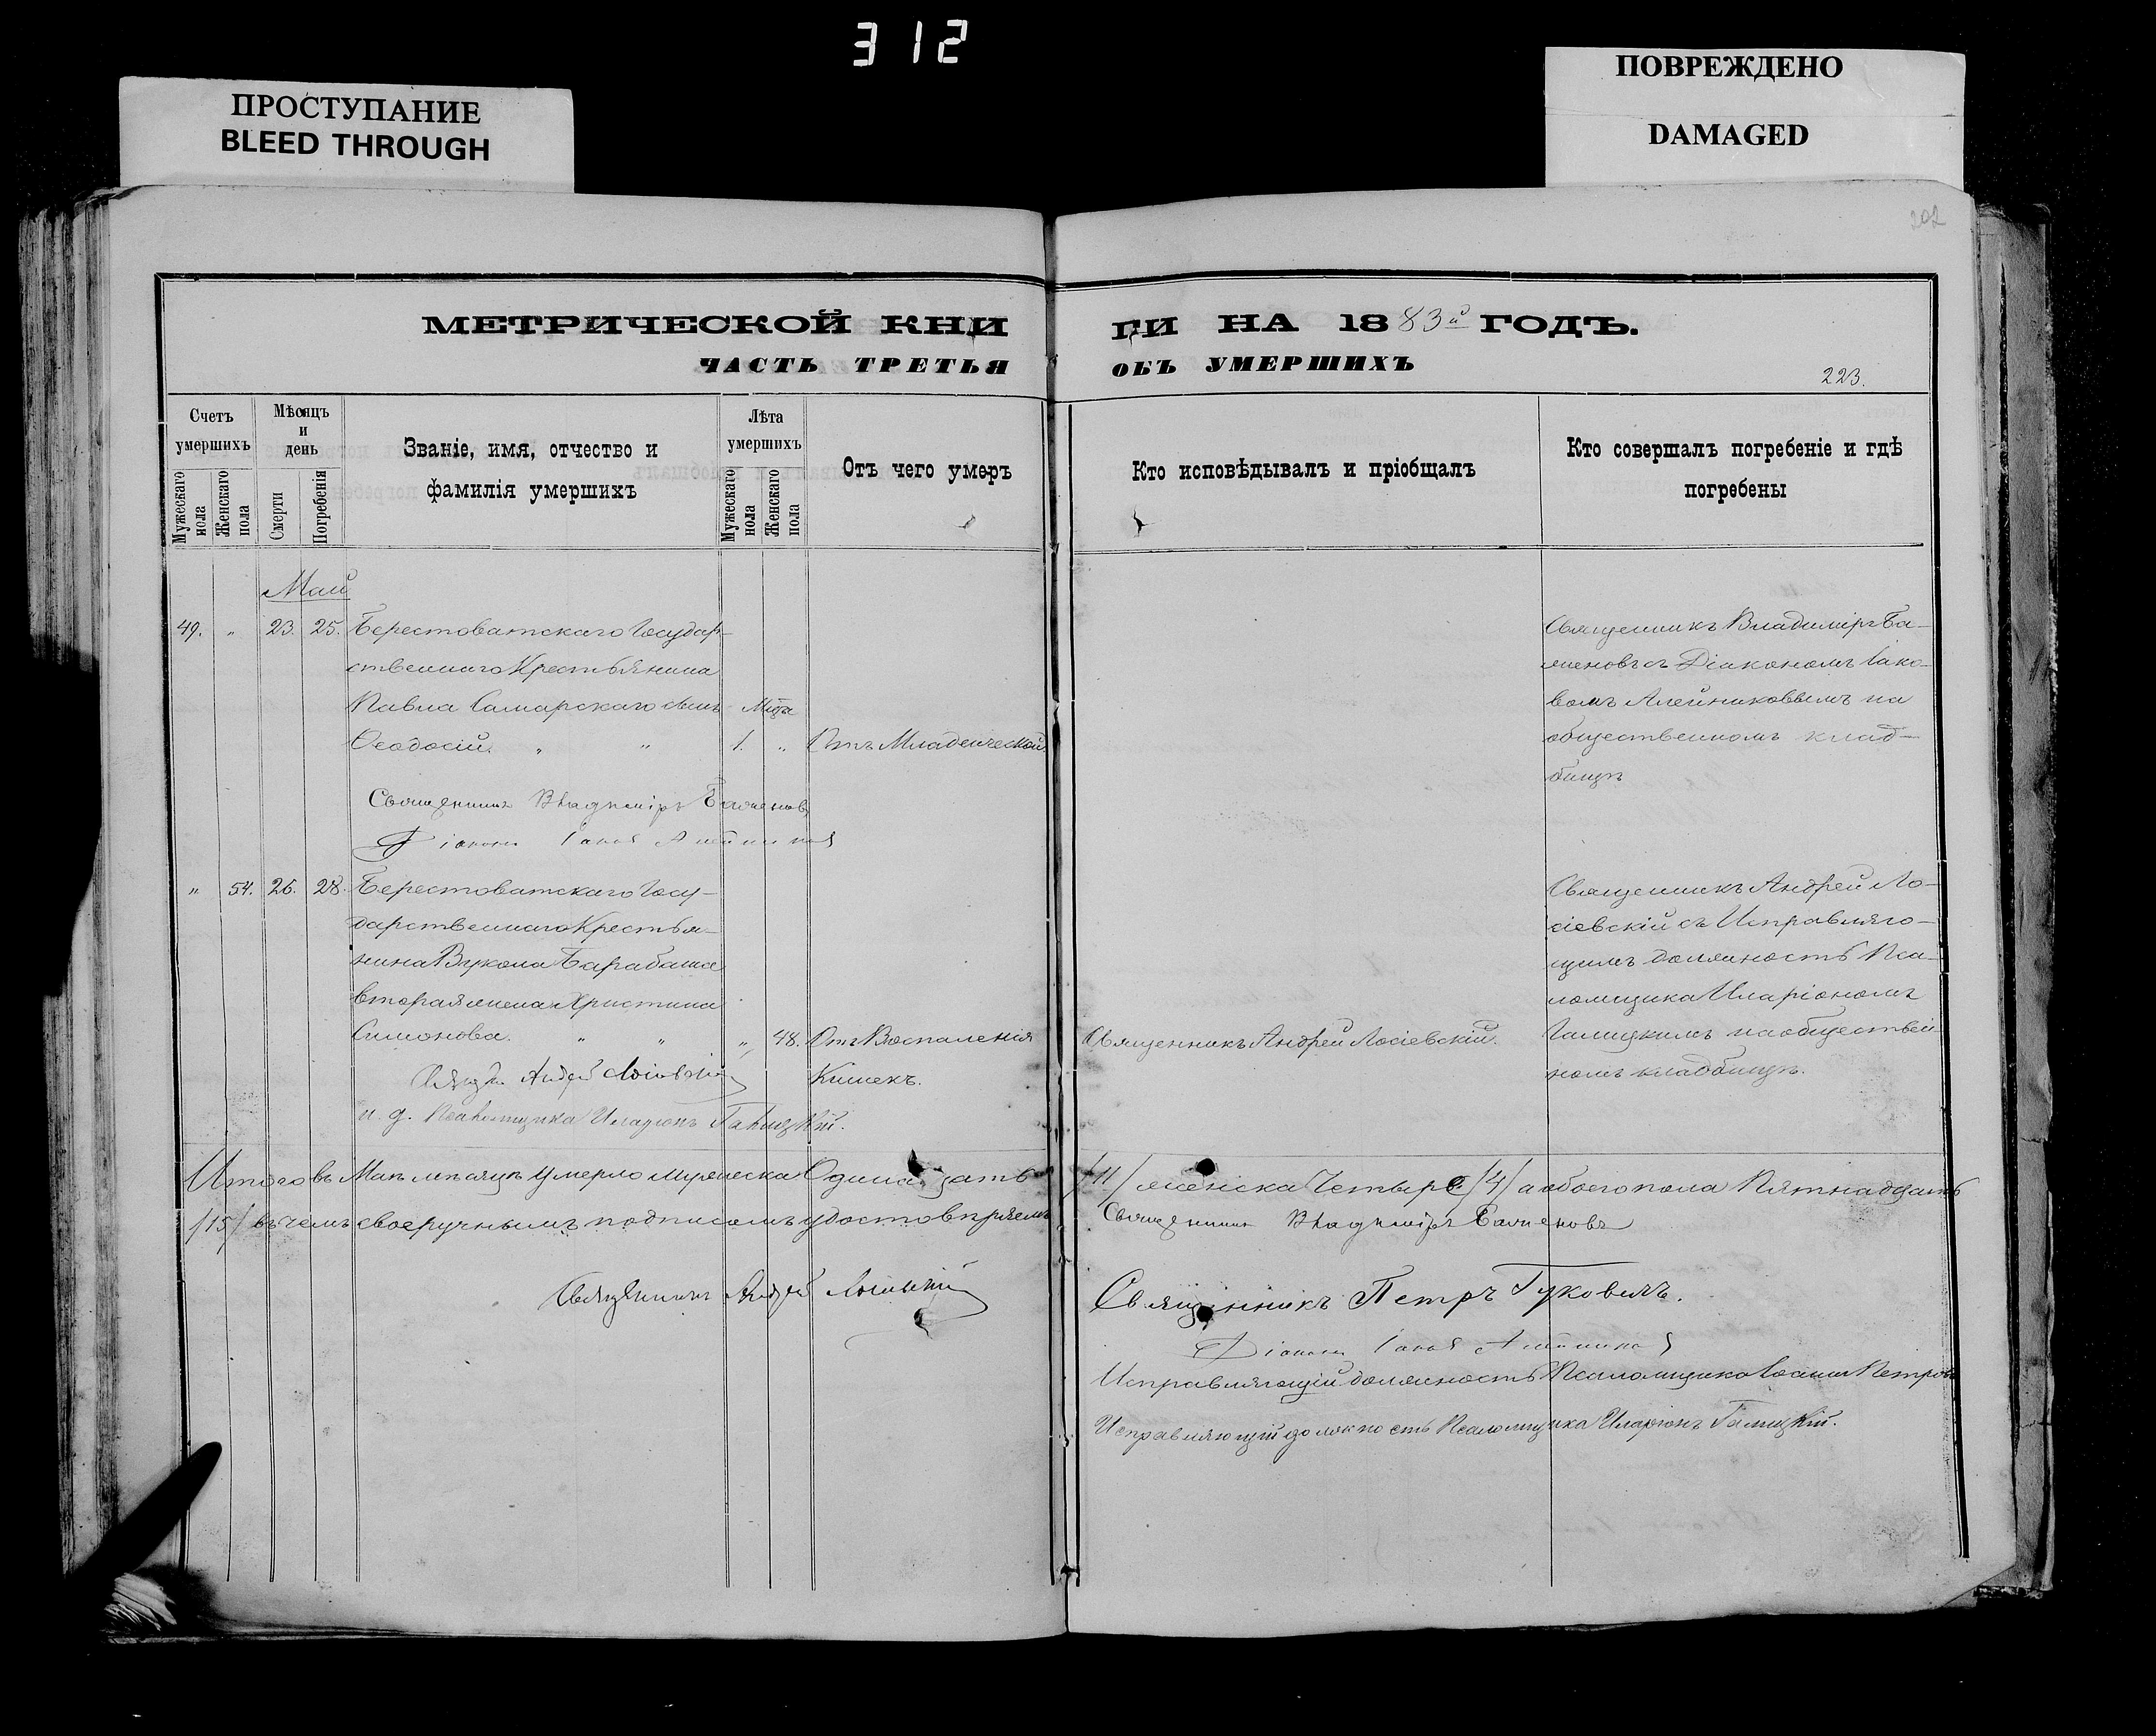 312
ПРОСТУПАНИЕ
BLEED THROUGH
ПОВРЕЖДЕНО
DAMAGED
202
МЕТРИЧЕСКОЙ КНИ
ГИ НА 1883й ГОДЪ.
ЧАСТЬ ТРЕТЬЯ
ОБЪ УМЕРШИХЪ
223.
Счетъ умершихъ
Мужескаго пола
Женскаго пола
Мѣсяцъ и день
Смерти
Погребенія
Званіе, имя, отчество и
фамилія умершихъ
Лѣта умершихъ
Мужескаго пола
Женскаго пола
Отъ чего умеръ
Кто исповѣдывалъ и пріобщалъ
Кто совершалъ погребеніе и гдѣ
погребены
Май
49. " 23. 25. Берестоватскаго Государ-
ственнаго Крестьянина
Павла Самарскаго сынъ
Ѳеодосій " " 1. " Отъ Младенческой
Священникъ Владиміръ Ба-
женовъ съ Діакономъ Іако-
вомъ Алейниковымъ на
общественномъ клад-
бищѣ
Священникъ Владиміръ Баженовъ
Діаконъ Іаковъ Алейниковъ
" 54. 26. 28. Берестоватскаго Госу-
дарственнаго Крестья-
нина Вукола Барабаша
вторая жена Христина
Симонова. " " " 48. Отъ Воспаленія
Кишекъ.
Священникъ Андрей Лосіевскій.
Священникъ Андрей Ло-
сіевскій съ Исправляю-
щимъ должность Пса-
ломщика Иларіономъ
Галицкимъ на обществен-
номъ кладбищѣ.
Андрей Лосіевскій
и. д. Псаломщика Иларіонъ Галицкій.
Итого въ Маѣ мѣсяцѣ умерло мужеска Одинадцать /11/ женска Четыре /4/ а обоего пола Пятнадцать
/15/ въ чемъ своеручнымъ подписомъ удостовѣряемъ
Священникъ Владиміръ Баженовъ
Священникъ Андрей Лосіевскій
Священникъ Петръ Гуковичъ.
Діаконъ Іаковъ Алейниковъ
Исправляющій должность Псаломщика Іоаннъ Петровъ
Исправляющій должность Псаломщика Иларіонъ Галицкій.